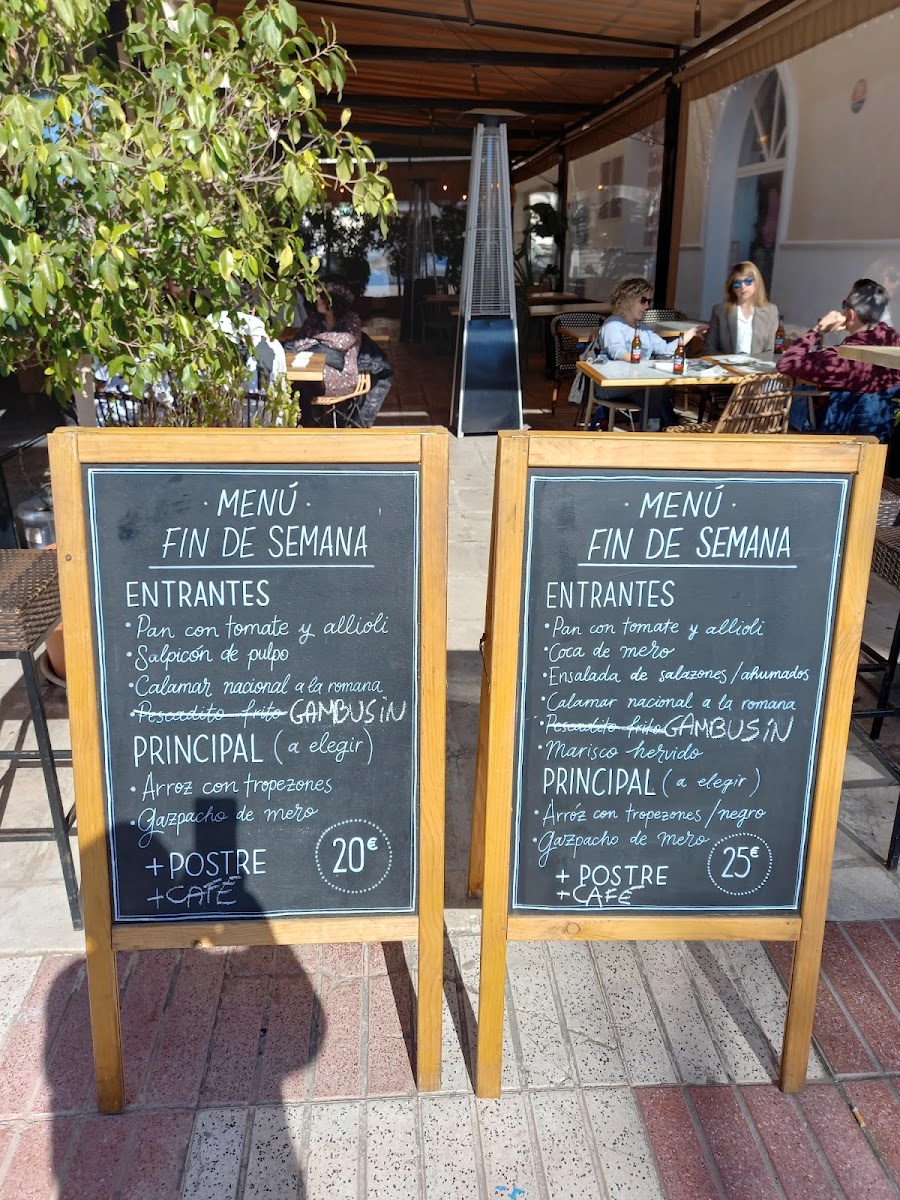 · MENÚ ·
FIN DE SEMANA
ENTRANTES
· Pan con tomate y allioli
· Salpicón de pulpo
· Calamar nacional a la romana
· Pescadito frito GAMBUSIN
PRINCIPAL (a elegir)
· Arroz con tropezones
· Gazpacho de mero
+ POSTRE
+ CAFÉ
20€
· MENÚ ·
FIN DE SEMANA
ENTRANTES
· Pan con tomate y allioli
· Coca de mero
· Ensalada de salazones/ahumados
· Calamar nacional a la romana
· Pescadito frito GAMBUSIN
· Marisco hervido
PRINCIPAL (a elegir)
· Arróz con tropezones/negro
· Gazpacho de mero
+ POSTRE
+ CAFÉ
25€